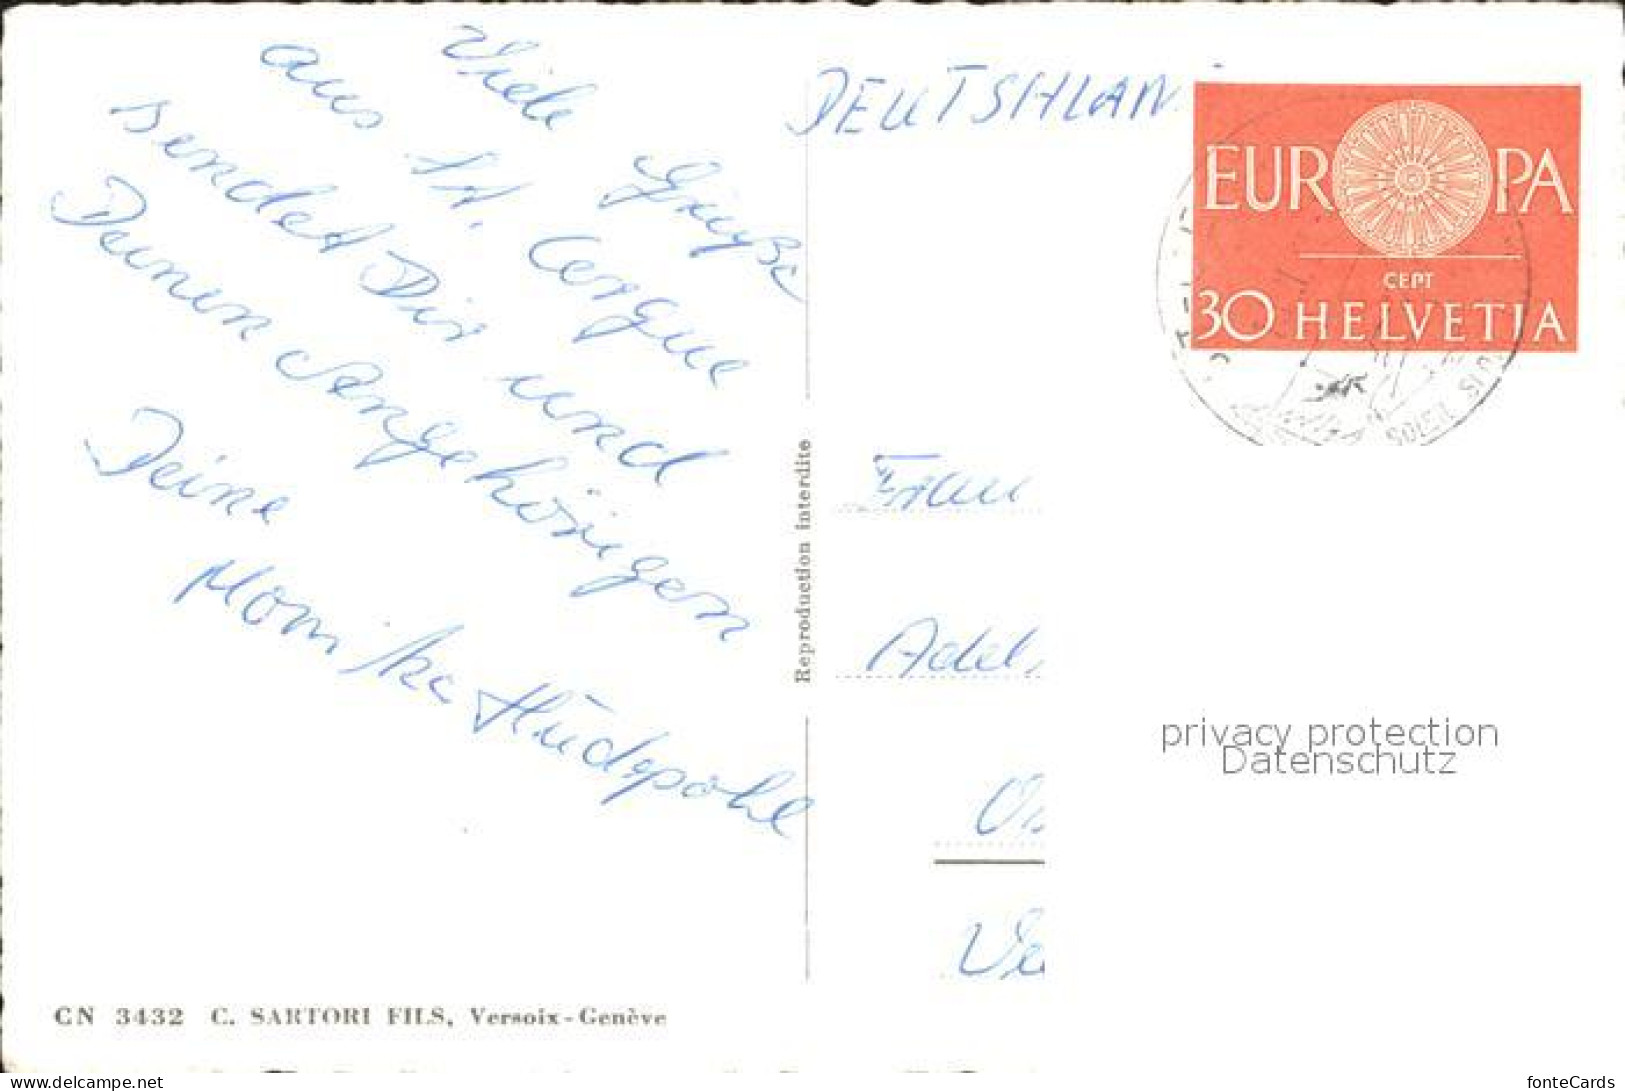 Viele Grüße
aus St. Cergue
sendet Dir und
Deinen Angehörigen
Deine
Monika Hüdepohl
DEUTSHLAN
EUROPA
CEPT
30 HELVETIA
SOLEIL
Reproduction interdite
Frau
Adel
privacy protection
Datenschutz
CN 3432 C. SARTORI FILS, Versoix-Genève
www.delcampe.net
fonteCards